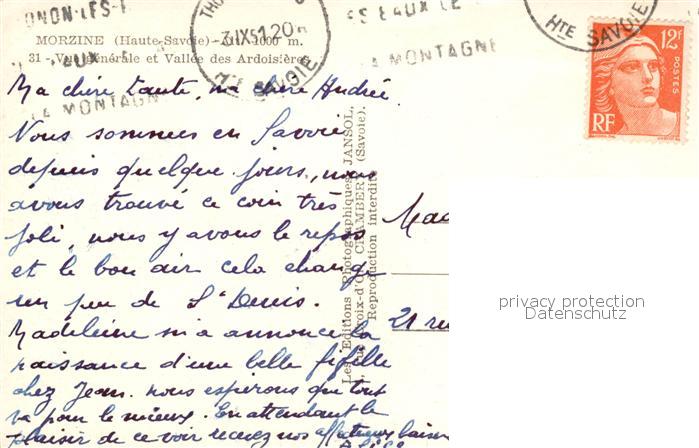 THONON-LES-B
EAUX LE
LA MONTAGNE
THO
3 IX 51 20
HTE SAVOIE
HTE SAVOIE
12F
POSTES
RF
MORZINE (Haute-Savoie) - Alt. 1000 m.
31 - Vue générale et Vallée des Ardoisières
LA MONTAGN
Ma chère Tante, ma chère Andrée.
Nous sommes en Savoie
depuis quelque jours, nous
avons trouvé ce coin très
joli, nous y avons le repos
et le bon air cela change
un peu de St Denis.
Madeleine m'a annoncé la
naissance d'une belle fifille
chez Jean. nous espérons que tout
va pour le mieux. En attendant le
plaisir de ce voir recevez nos affectueux baisers
Les Editions Photographiques JANSOL,
rue Croix-d'Or, CHAMBERY (Savoie).
Reproduction interdite
Mad
21 rue
privacy protection
Datenschutz